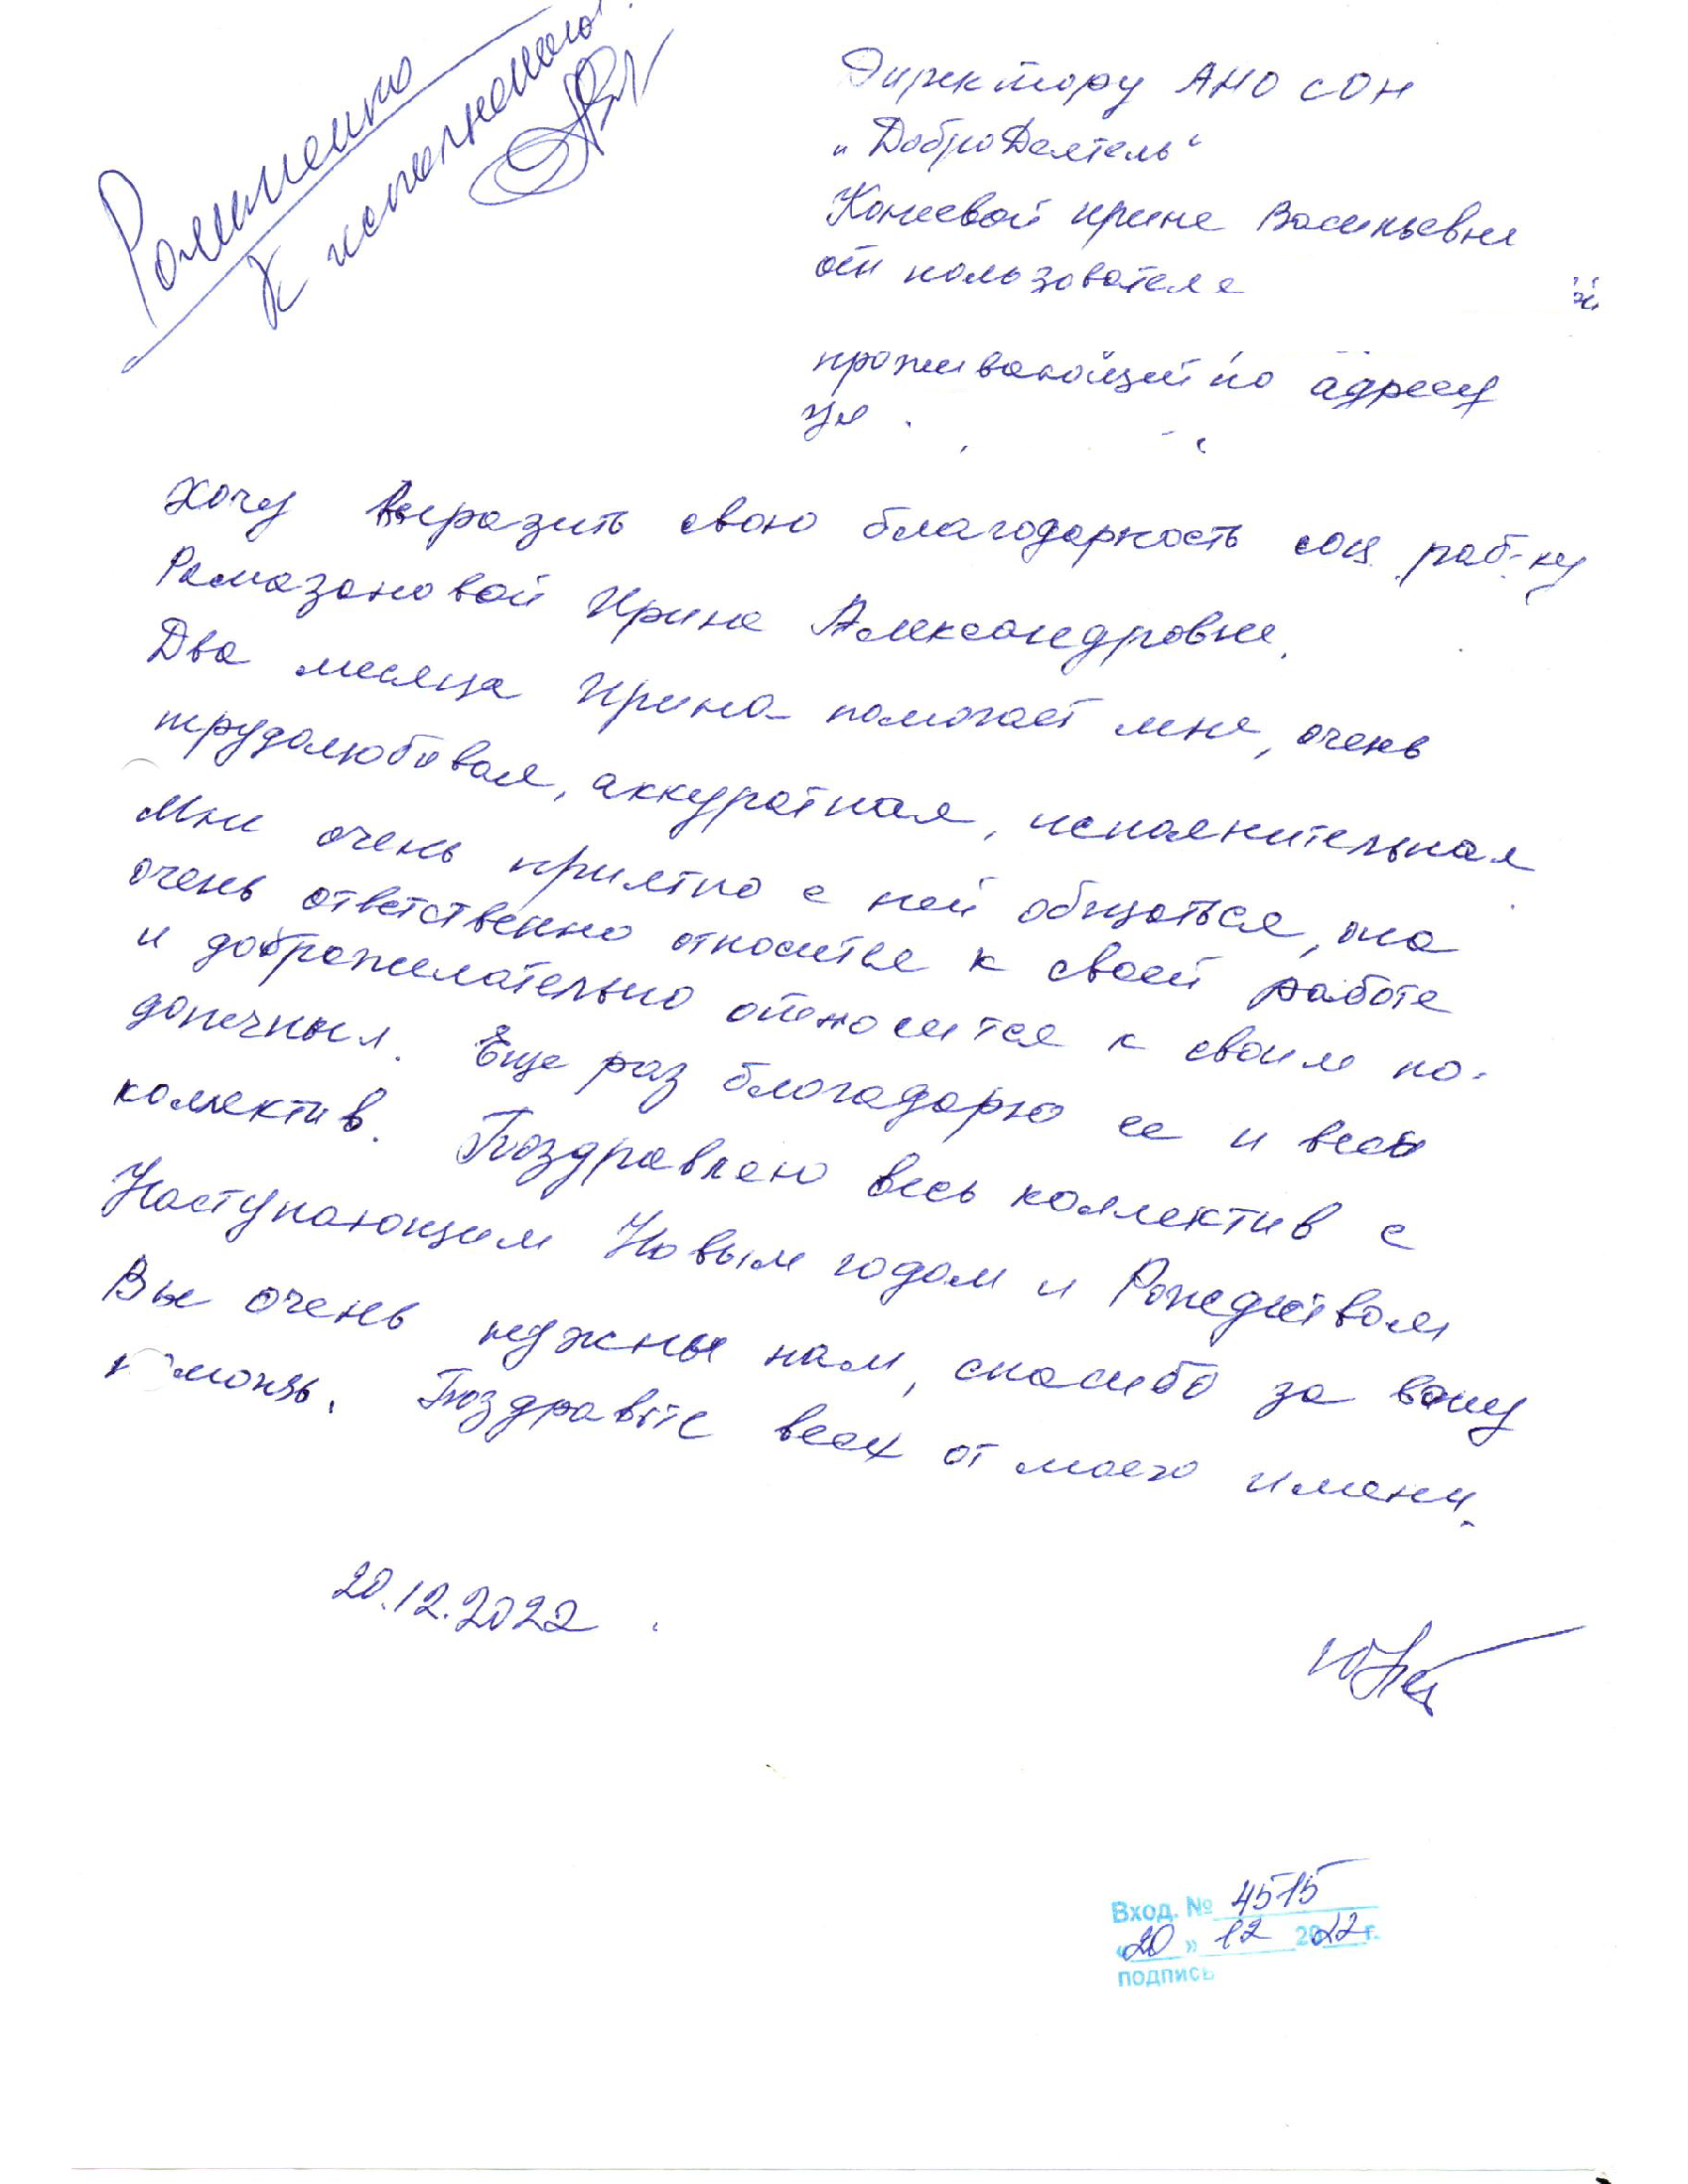 К исполнению!
Директору АНО СОН
"ДоброДеятель"
Коневой Ирине Васильевне
от пользователя
проживающей по адресу
ул
Хочу выразить свою благодарность соц. раб-ку
Рамазановой Ирине Александровне.
Два месяца Ирина помогает мне, очень
трудолюбивая, аккуратная, исполнительная
Мне очень приятно с ней общаться, она
очень ответственно относиться к своей работе
и доброжелательно относится к своим по-
допечным. Еще раз благодарю ее и весь
коллектив. Поздравляю весь коллектив с
Наступающим Новым годом и Рождеством
Вы очень нужны нам, спасибо за вашу
помощь. Поздравьте всех от моего имени.
20.12.2022
Вход. № 4515
«20» 12 2022 г.
подпись